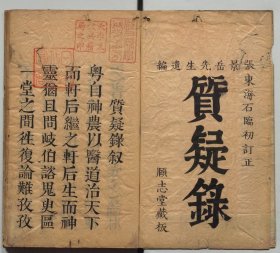 張東海石臨初訂正
景岳先生遺編
質疑錄
願志堂藏板
質疑錄叙
粤自神農以醫道治天下
而軒后繼之軒后生而神
靈猶且問岐伯諮鬼臾區
一堂之間徃復論難孜孜